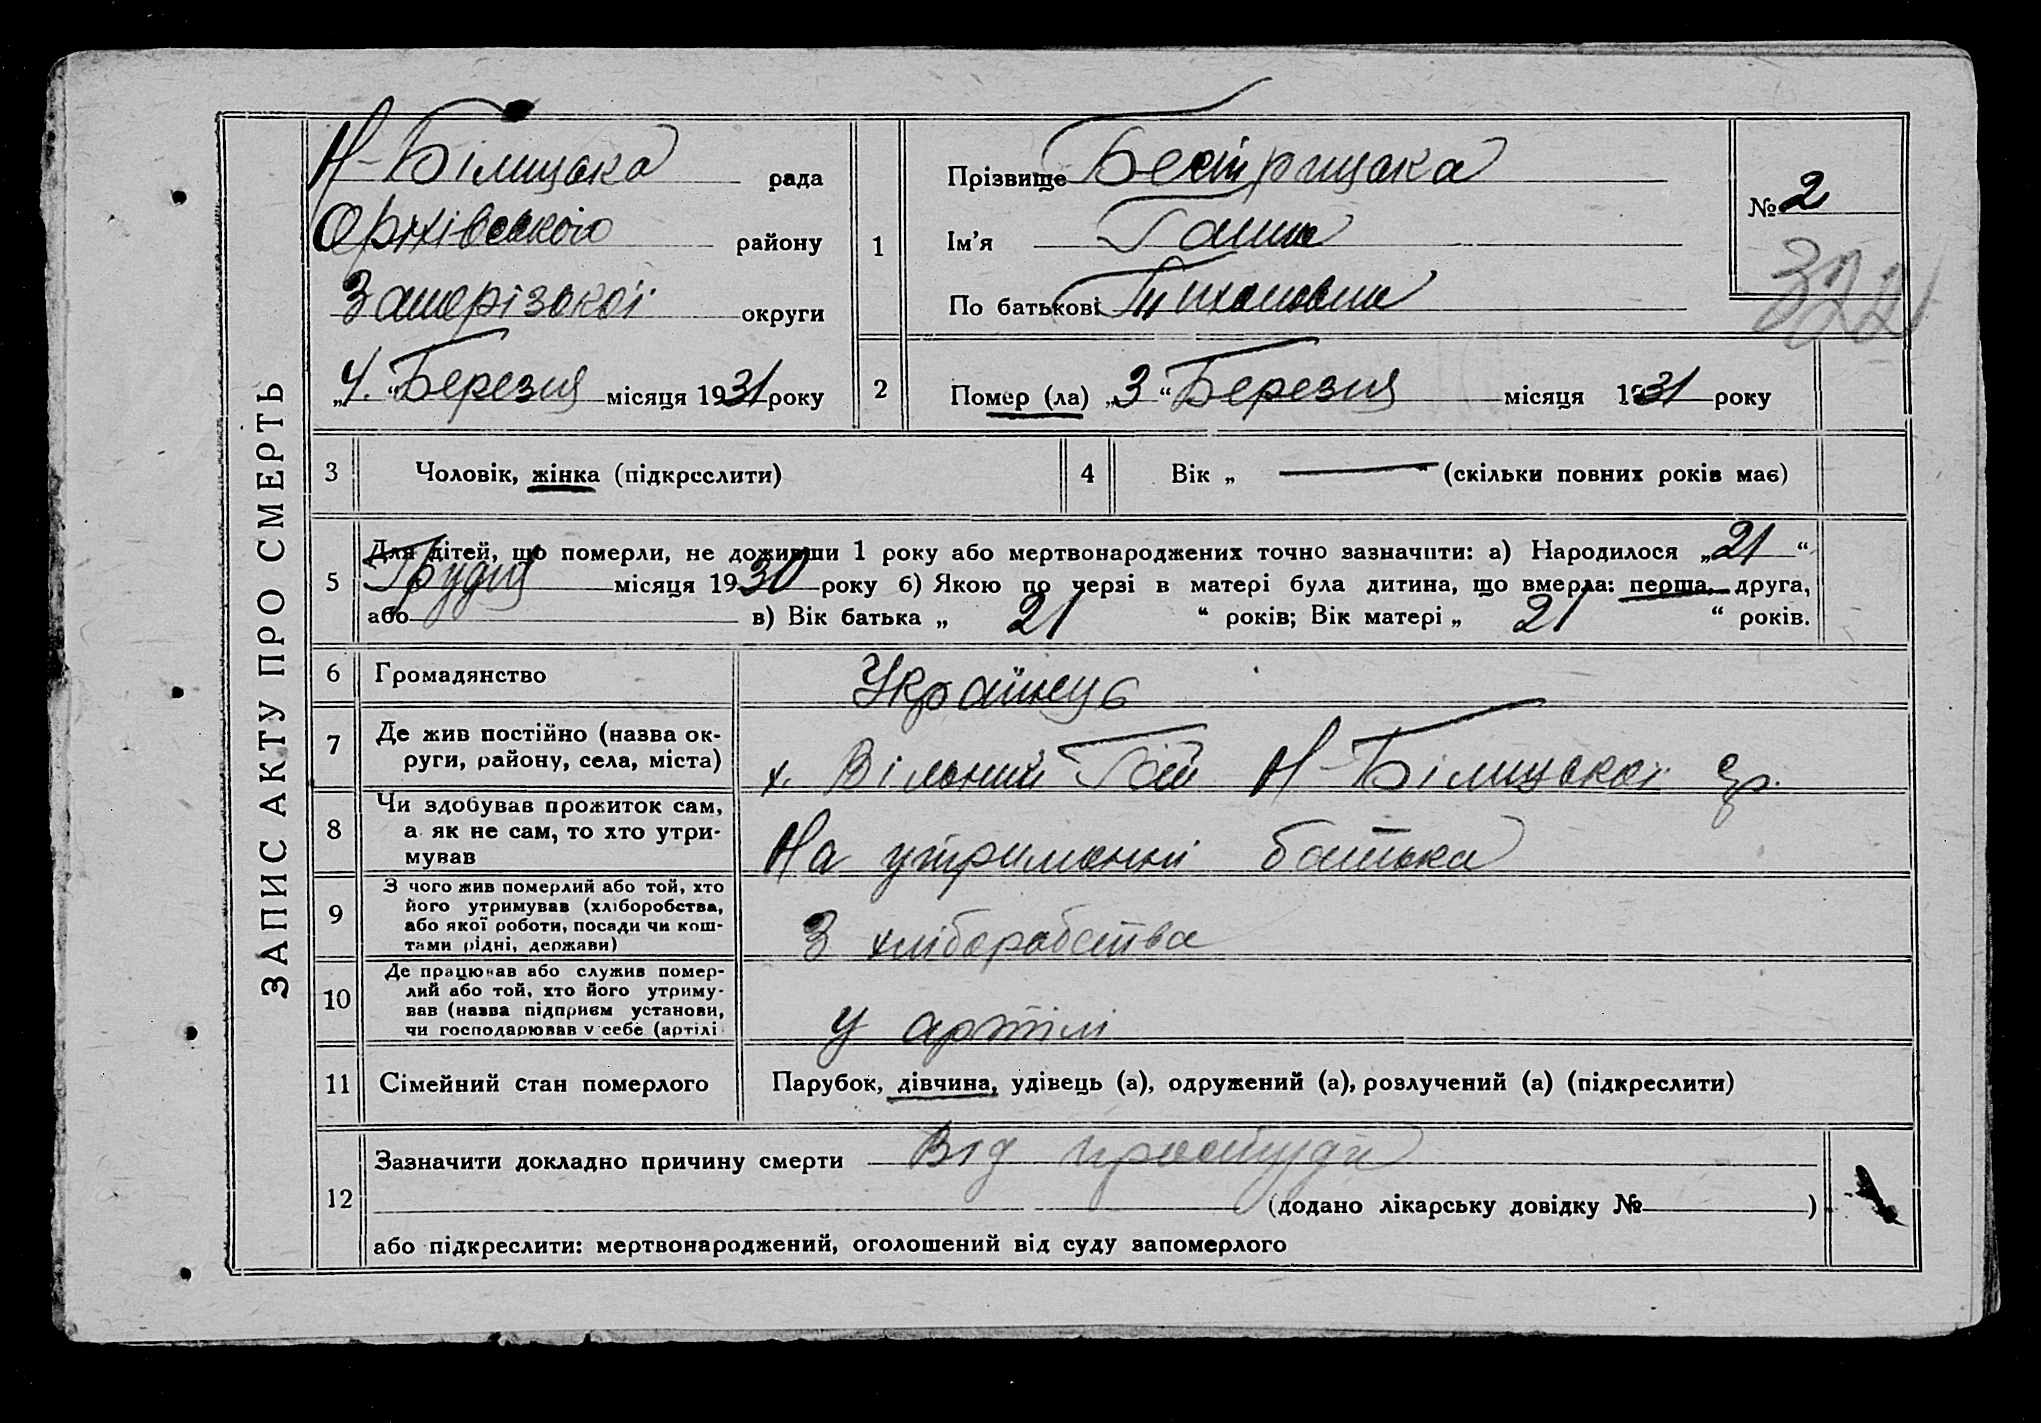 ЗАПИС АКТУ ПРО СМЕРТЬ
Н-Білицька рада
Оріхівського району
Запорізької округи
„4.“ Березня місяця 1931 року
1
Прізвище Бестрицька
Ім’я Ганна
По батькові Тихановна
№ 2
2
Помер (ла) „3“ Березня місяця 1931 року
3 Чоловік, жінка (підкреслити)
4 Вік „ — “ (скільки повних років має)
5 Для дітей, що померли, не доживши 1 року або мертвонароджених точно зазначити: а) Народилося „21“
Грудня місяця 1930 року б) Якою по черзі в матері була дитина, що вмерла: перша, друга,
або в) Вік батька „ 21 “ років; Вік матері „ 21 “ років.
6 Громадянство Українцус
7 Де жив постійно (назва ок-
руги, району, села, міста)
х. Вільний Гай Н-Білицької с/р.
8 Чи здобував прожиток сам,
а як не сам, то хто утри-
мував
На утриманні батька
9 З чого жив померлий або той, хто
його утримував (хліборобства,
або якої роботи, посади чи кош-
тами рідні, держави)
З хліборобства
10 Де працював або служив помер-
лий або той, хто його утриму-
вав (назва підприєм установи,
чи господарював у себе (артілі
У артілі
11 Сімейний стан померлого Парубок, дівчина, удівець (а), одружений (а), розлучений (а) (підкреслити)
12 Зазначити докладно причину смерти Від простуди
(додано лікарську довідку № )
або підкреслити: мертвонароджений, оголошений від суду запомерлого